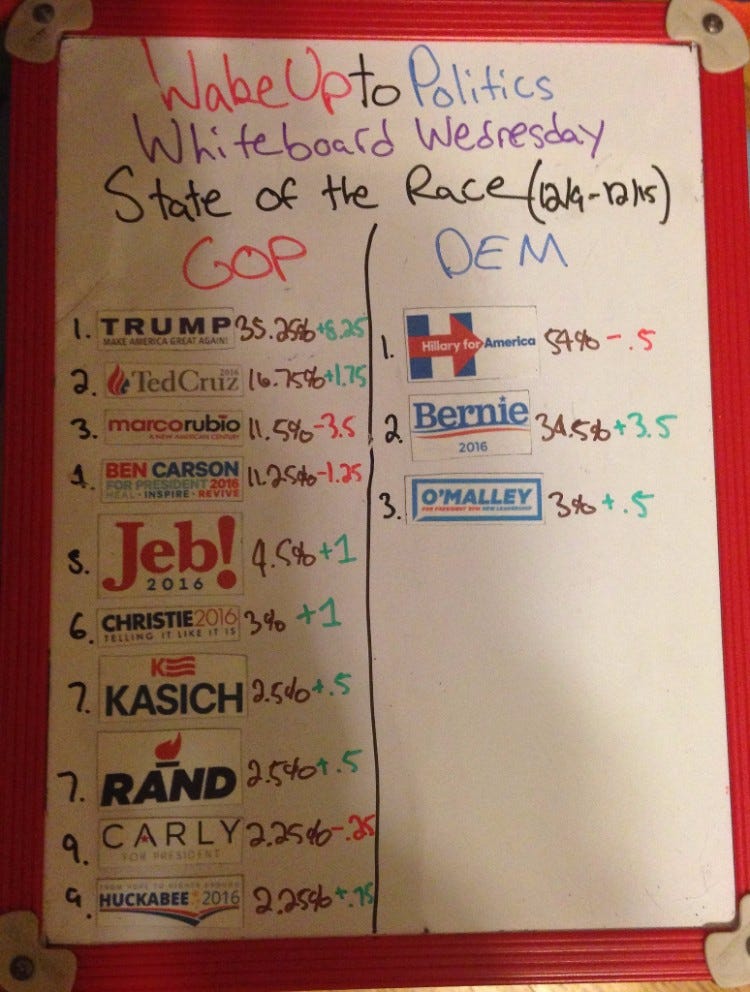 Wake Up to Politics
Whiteboard Wednesday
State of the Race (12/9-12/15)
GOP
1. TRUMP 35.25% +8.25
MAKE AMERICA GREAT AGAIN!
2. Ted Cruz 2016 16.75% +1.75
3. marco rubio 11.5% -3.5
A NEW AMERICAN CENTURY
4. BEN CARSON 11.25% -1.25
FOR PRESIDENT 2016
HEAL · INSPIRE · REVIVE
5. Jeb! 4.5% +1
2016
6. CHRISTIE 2016 3% +1
TELLING IT LIKE IT IS
7. K
KASICH 2.5% +.5
7. RAND 2.5% +.5
9. CARLY 2.25% -.25
FOR PRESIDENT
FROM HOPE TO HIGHER GROUND
9. HUCKABEE 2016 2.25% +.75
DEM
1. H Hillary for America 54% -.5
2. Bernie 34.5% +3.5
2016
3. O'MALLEY 3% +.5